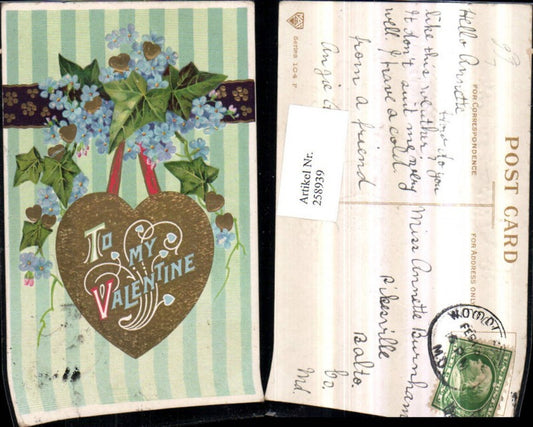 TO
MY
VALENTINE
Series 104 F
POST CARD
FOR CORRESPONDENCE
FOR ADDRESS ONLY
Hello Annette
how do you
like this weather
It don't suit me very
well I have a cold
from a friend
Angie
Artikel Nr.
258939
Miss Annette Burnham
Pikesville
Balto.
Co
Md.
FEB
MD.